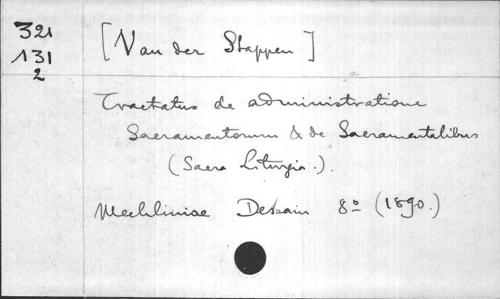 321
131
2
[Van der Stappen]
Tractatus de administratione
Sacramentorum & de Sacramentalibus
(Sacra Liturgia.).
Mechliniae Dessain 8º (1890.)